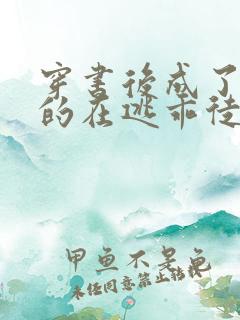 穿书后成了
的在逃乖徒
甲鱼不是龟
未经同意禁止转载